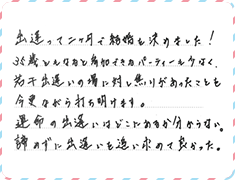 出逢って二ヶ月で結婚を決めました！
35歳ともなると参加できるパーティーも少なく、
若干出逢いの場に対し焦りがあったことも
今更ながら打ち明けます。
運命の出逢いはどこにあるか分からない。
諦めずに出逢いを追い求めて良かった。